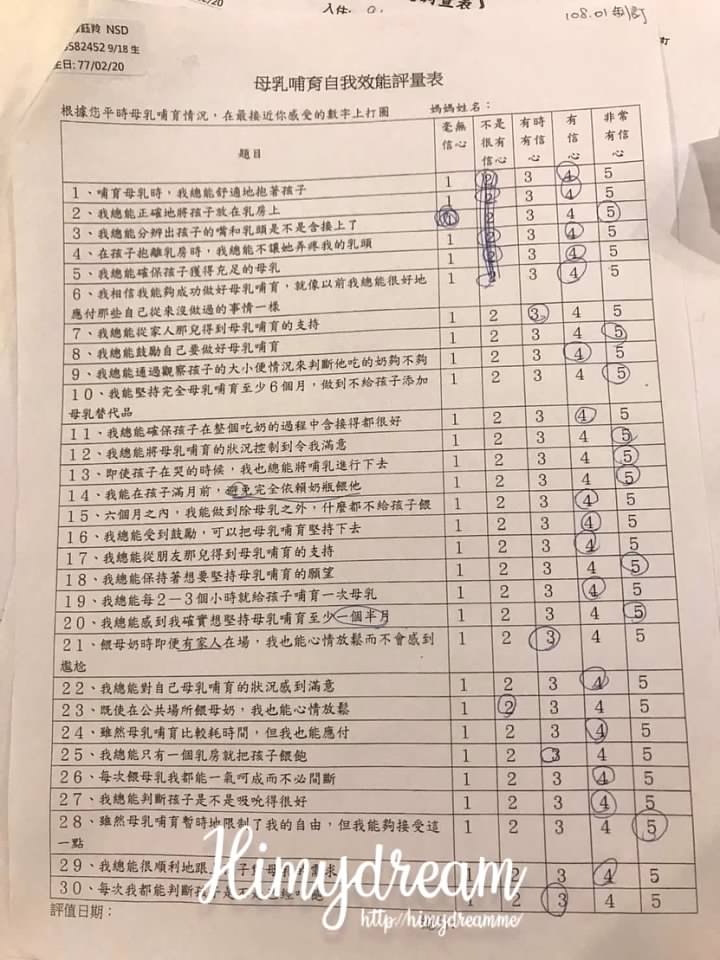 108.01制訂
鈺羚 NSD
582452 9/18 生
生日: 77/02/20
母乳哺育自我效能評量表
根據您平時母乳哺育情況,在最接近你感受的數字上打圈 媽媽姓名:
題目 毫無信心 不是很有信心 有時有信心 有信心 非常有信心
1、哺育母乳時,我總能舒適地抱著孩子 1 2 3 4 5
2、我總能正確地將孩子放在乳房上 1 2 3 4 5
3、我總能分辨出孩子的嘴和乳頭是不是含接上了 1 2 3 4 5
4、在孩子抱離乳房時,我總能不讓她弄疼我的乳頭 1 2 3 4 5
5、我總能確保孩子獲得充足的母乳 1 2 3 4 5
6、我相信我能夠成功做好母乳哺育,就像以前我總能很好地 1 2 3 4 5
應付那些自己從來沒做過的事情一樣
7、我總能從家人那兒得到母乳哺育的支持 1 2 3 4 5
8、我總能鼓勵自己要做好母乳哺育 1 2 3 4 5
9、我總能通過觀察孩子的大小便情況來判斷他吃的奶夠不夠 1 2 3 4 5
10、我能堅持完全母乳哺育至少6個月,做到不給孩子添加 1 2 3 4 5
母乳替代品
11、我總能確保孩子在整個吃奶的過程中含接得都很好 1 2 3 4 5
12、我總能將母乳哺育的狀況控制到令我滿意 1 2 3 4 5
13、即使孩子在哭的時候,我也總能將哺乳進行下去 1 2 3 4 5
14、我能在孩子滿月前,避免完全依賴奶瓶餵他 1 2 3 4 5
15、六個月之內,我能做到除母乳之外,什麼都不給孩子餵 1 2 3 4 5
16、我總能受到鼓勵,可以把母乳哺育堅持下去 1 2 3 4 5
17、我總能從朋友那兒得到母乳哺育的支持 1 2 3 4 5
18、我總能保持著想要堅持母乳哺育的願望 1 2 3 4 5
19、我總能每2-3個小時就給孩子哺育一次母乳 1 2 3 4 5
20、我總能感到我確實想堅持母乳哺育至少一個半月 1 2 3 4 5
21、餵母奶時即便有家人在場,我也能心情放鬆而不會感到 1 2 3 4 5
尷尬
22、我總能對自己母乳哺育的狀況感到滿意 1 2 3 4 5
23、既使在公共場所餵母奶,我也能心情放鬆 1 2 3 4 5
24、雖然母乳哺育比較耗時間,但我也能應付 1 2 3 4 5
25、我總能只有一個乳房就把孩子餵飽 1 2 3 4 5
26、每次餵母乳我都能一氣呵成而不必間斷 1 2 3 4 5
27、我總能判斷孩子是不是吸吮得很好 1 2 3 4 5
28、雖然母乳哺育暫時地限制了我的自由,但我能夠接受這 1 2 3 4 5
一點
29、我總能很順利地跟 1 2 3 4 5
30、每次我都能判斷孩子是不是 1 2 3 4 5
評值日期:
Himydream
http://himydreamme/